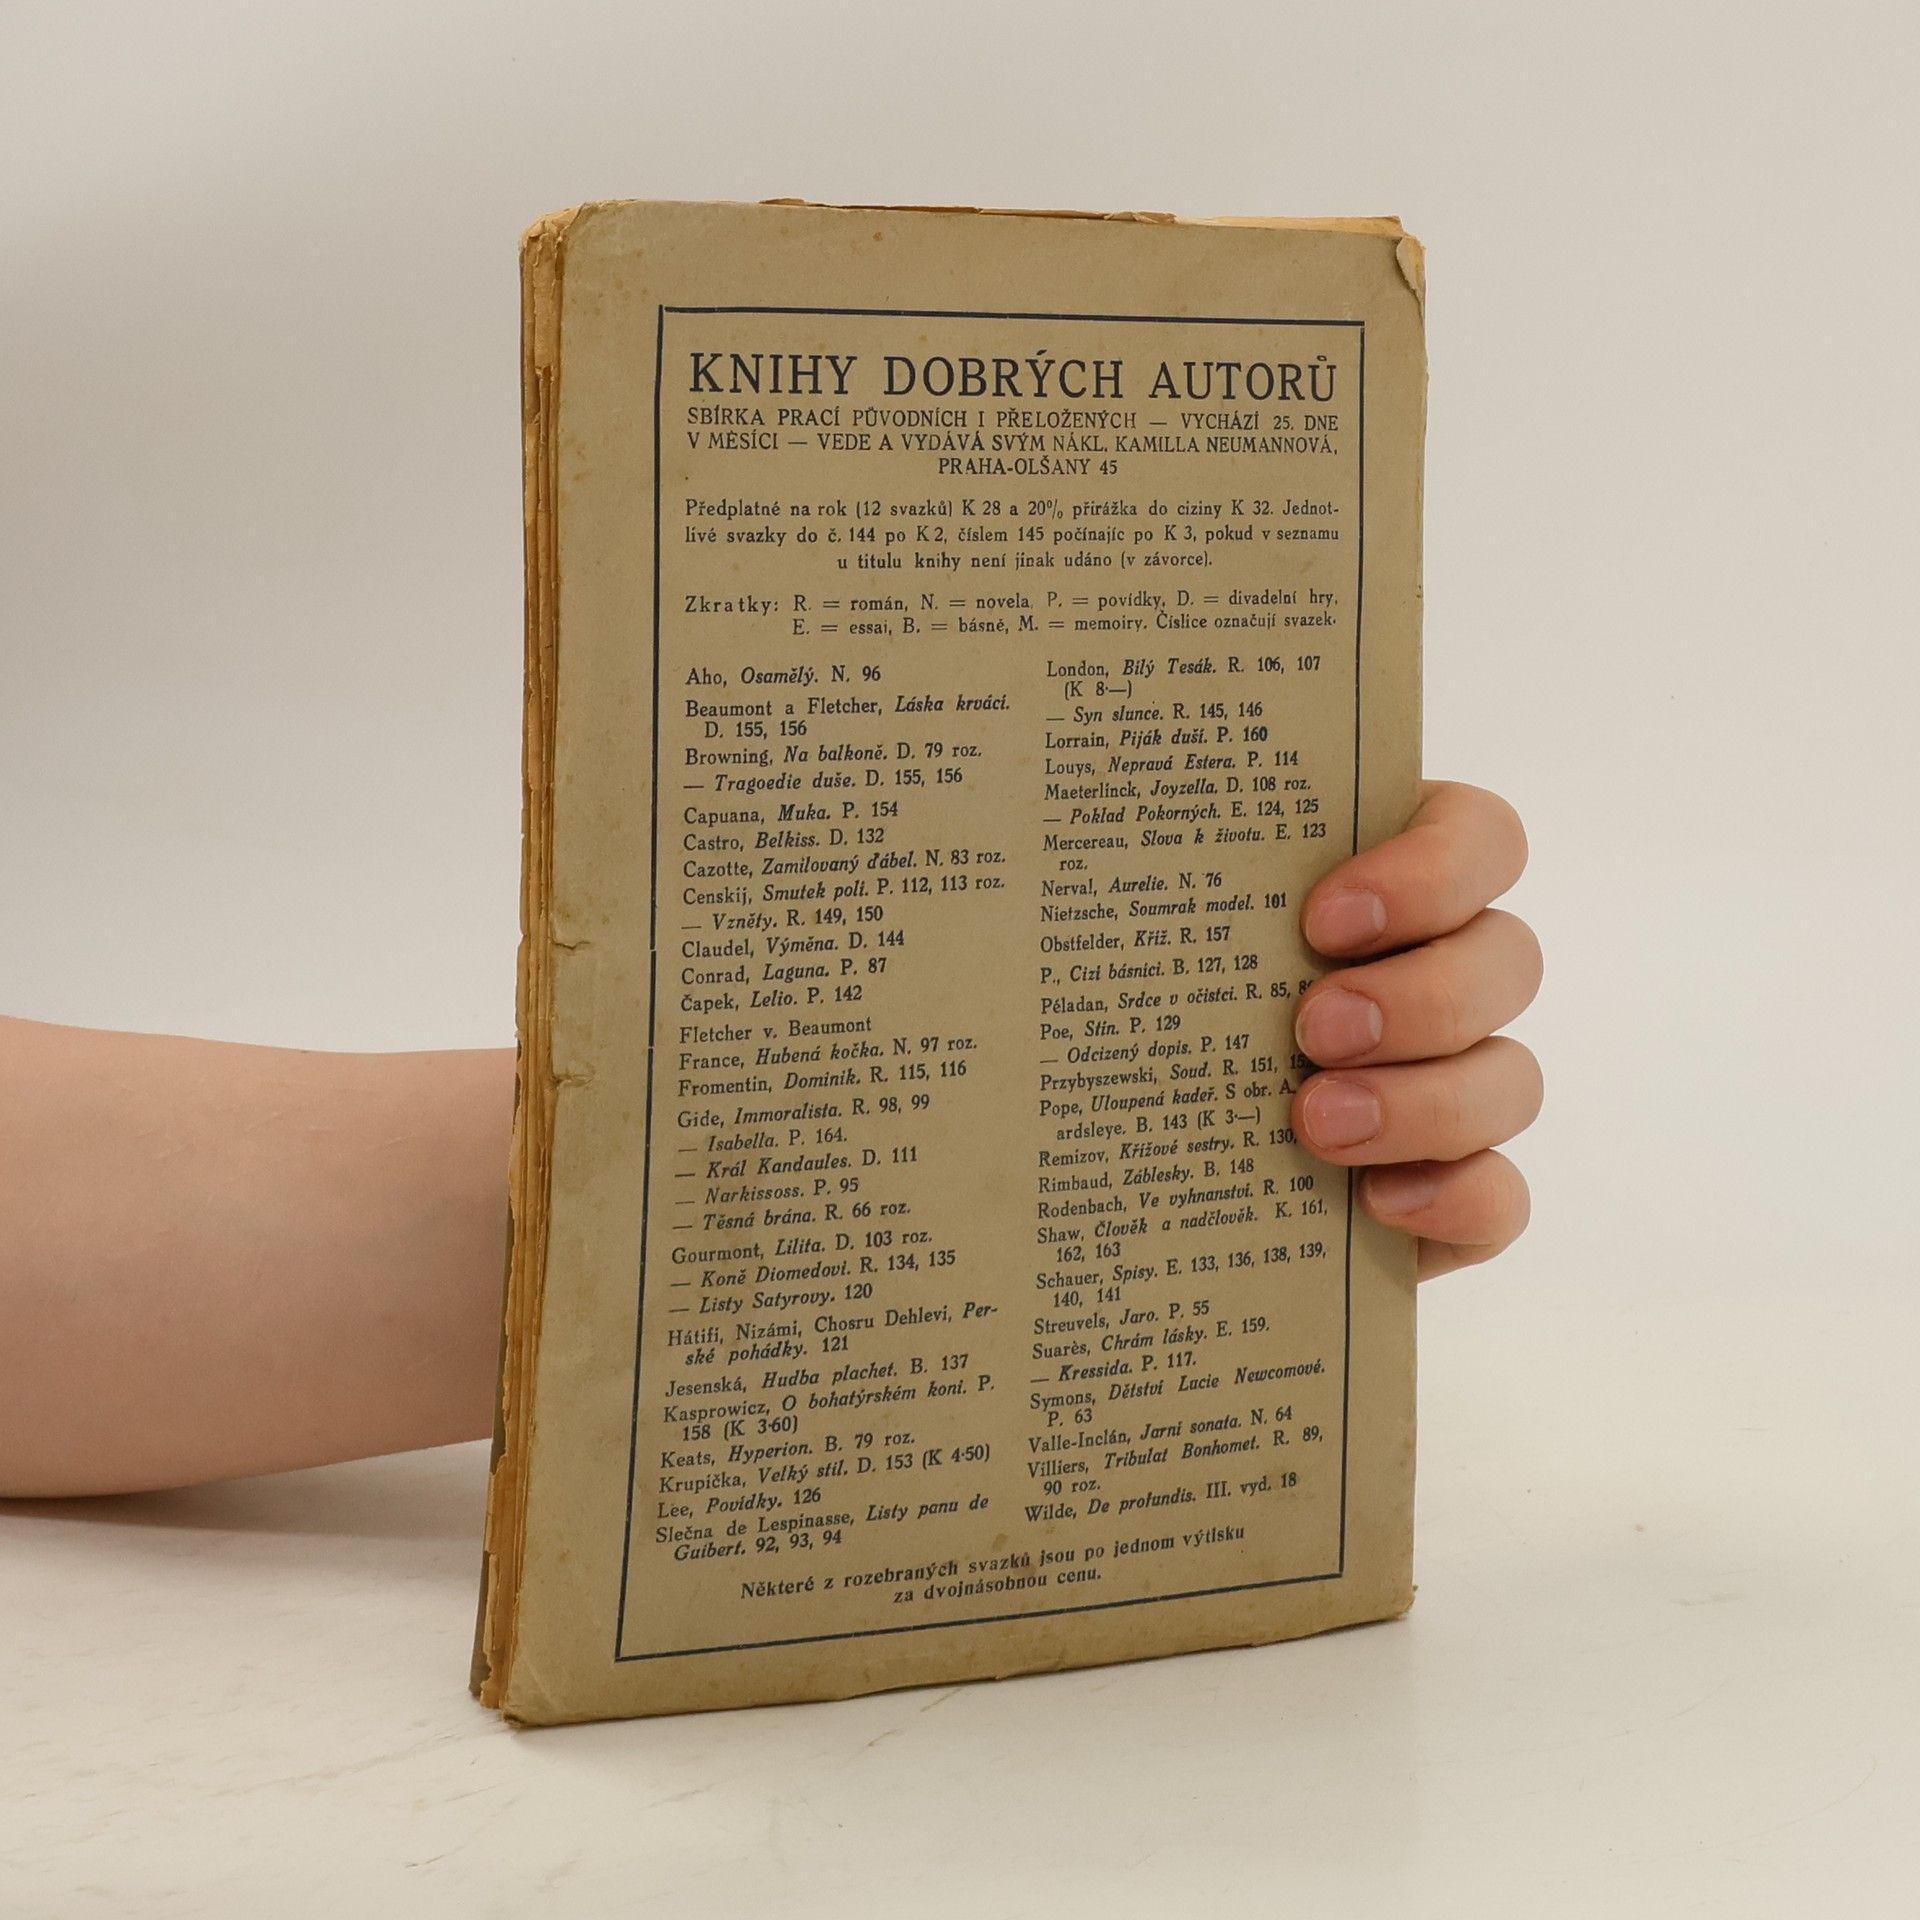 KNIHY DOBRÝCH AUTORŮ
SBÍRKA PRACÍ PŮVODNÍCH I PŘELOŽENÝCH — VYCHÁZÍ 25. DNE
V MĚSÍCI — VEDE A VYDÁVÁ SVÝM NÁKL. KAMILLA NEUMANNOVÁ,
PRAHA-OLŠANY 45
Předplatné na rok (12 svazků) K 28 a 20% přirážka do ciziny K 32. Jednot-
livé svazky do č. 144 po K 2, číslem 145 počínajíc po K 3, pokud v seznamu
u titulu knihy není jinak udáno (v závorce).
Zkratky: R. = román, N. = novela, P. = povídky, D. = divadelní hry,
E. = essai, B. = básně, M. = memoiry. Číslice označují svazek.
Aho, Osamělý. N. 96
Beaumont a Fletcher, Láska krvácí.
D. 155, 156
Browning, Na balkoně. D. 79 roz.
— Tragoedie duše. D. 155, 156
Capuana, Muka. P. 154
Castro, Belkiss. D. 132
Cazotte, Zamilovaný ďábel. N. 83 roz.
Censkij, Smutek polí. P. 112, 113 roz.
— Vzněty. R. 149, 150
Claudel, Výměna. D. 144
Conrad, Laguna. P. 87
Čapek, Lelio. P. 142
Fletcher v. Beaumont
France, Hubená kočka. N. 97 roz.
Fromentin, Dominik. R. 115, 116
Gide, Immoralista. R. 98, 99
— Isabella. P. 164.
— Král Kandaules. D. 111
— Narkissoss. P. 95
— Těsná brána. R. 66 roz.
Gourmont, Lilita. D. 103 roz.
— Koně Diomedovi. R. 134, 135
— Listy Satyrovy. 120
Hátifi, Nizámi, Chosru Dehlevi, Per-
ské pohádky. 121
Jesenská, Hudba plachet. B. 137
Kasprowicz, O bohatýrském koni. P.
158 (K 3·60)
Keats, Hyperion. B. 79 roz.
Krupička, Velký stil. D. 153 (K 4·50)
Lee, Povídky. 126
Slečna de Lespinasse, Listy panu de
Guibert. 92, 93, 94
London, Bílý Tesák. R. 106, 107
(K 8·—)
— Syn slunce. R. 145, 146
Lorrain, Piják duší. P. 160
Louys, Nepravá Estera. P. 114
Maeterlinck, Joyzella. D. 108 roz.
— Poklad Pokorných. E. 124, 125
Mercereau, Slova k životu. E. 123
roz.
Nerval, Aurelie. N. 76
Nietzsche, Soumrak model. 101
Obstfelder, Kříž. R. 157
P., Cizí básníci. B. 127, 128
Péladan, Srdce v očistci. R. 85,
Poe, Stín. P. 129
— Odcizený dopis. P. 147
Przybyszewski, Soud. R. 151,
Pope, Uloupená kadeř. S obr. A.
ardsleye. B. 143 (K 3·—)
Remizov, Křížové sestry. R. 130,
Rimbaud, Záblesky. B. 148
Rodenbach, Ve vyhnanství. R. 100
Shaw, Člověk a nadčlověk. K. 161,
162, 163
Schauer, Spisy. E. 133, 136, 138, 139,
140, 141
Streuvels, Jaro. P. 55
Suarès, Chrám lásky. E. 159.
— Kressida. P. 117.
Symons, Dětství Lucie Newcomové.
P. 63
Valle-Inclán, Jarní sonata. N. 64
Villiers, Tribulat Bonhomet. R. 89,
90 roz.
Wilde, De profundis. III. vyd. 18
Některé z rozebraných svazků jsou po jednom výtisku
za dvojnásobnou cenu.